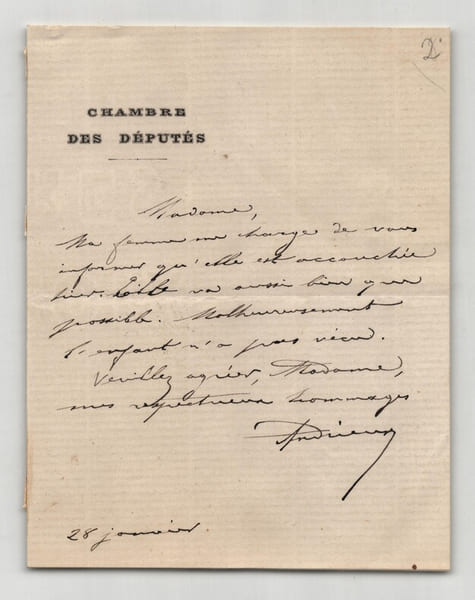 2
CHAMBRE
DES DÉPUTÉS
Madame,
Ma femme me charge de vous
informer qu'elle est accouchée
hier. Elle va aussi bien que
possible. Malheureusement
l'enfant n'a pas vécu.
Veuillez agréer, Madame,
mes respectueux hommages
Andrieux
28 janvier.